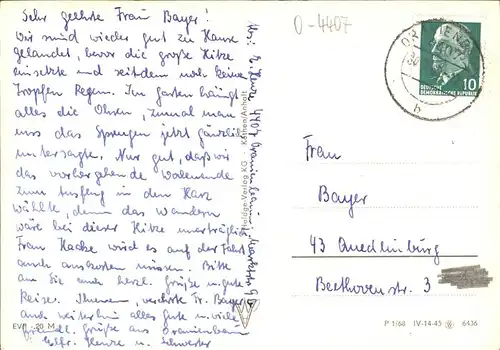 Sehr geehrte Frau Bayer!
Wir sind wieder gut zu Hause
gelandet, bevor die große Hitze
einsetzte und seitdem noch keine
Tropfen Regen. Im Garten hängt
alles die Ohren, zumal man
uns das Sprengen jetzt gänzlich
untersagte. Nur gut, daß wir
das vorhergehende Wochenende
zum Ausflug in den Harz
wählte, denn das Wandern
wäre bei dieser Hitze unerträglich.
Frau Hacke wird es auf der Fahrt
auch auskosten müssen. Bitte
an Sie auch herzl. Grüße u. gute
Reise. Ihnen, verehrte Fr. Bayer
auch weiterhin alles Gute u. viele
freundl. Grüße aus Oranienbaum
Henze u. Schwester
EVP -,20 M
4407 Oranienbaum
Heldge-Verlag KG · Köthen/Anhalt
0-4407
DEUTSCHE
DEMOKRATISCHE REPUBLIK
10
b
Frau
Bayer
43 Quedlinburg
Beethovenstr. 3
P 1/68 IV-14-45 6436